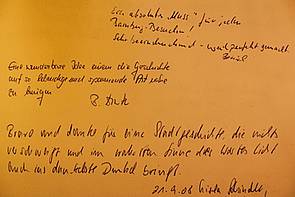 Ein absolutes "Muss" für jeden
Bamberg-Besucher!
Sehr beeindruckend - perfekt gemacht.
Eine wunderbare Idee einem die Geschichte
auf so lebendige und spannende Art nahe
zu bringen
B.
Bravo und danke für eine Stadtgeschichte, die nichts
verschweigt und im wahrsten Sinne des Wortes Licht
auch in das letzte Dunkel bringt.
21.9.08